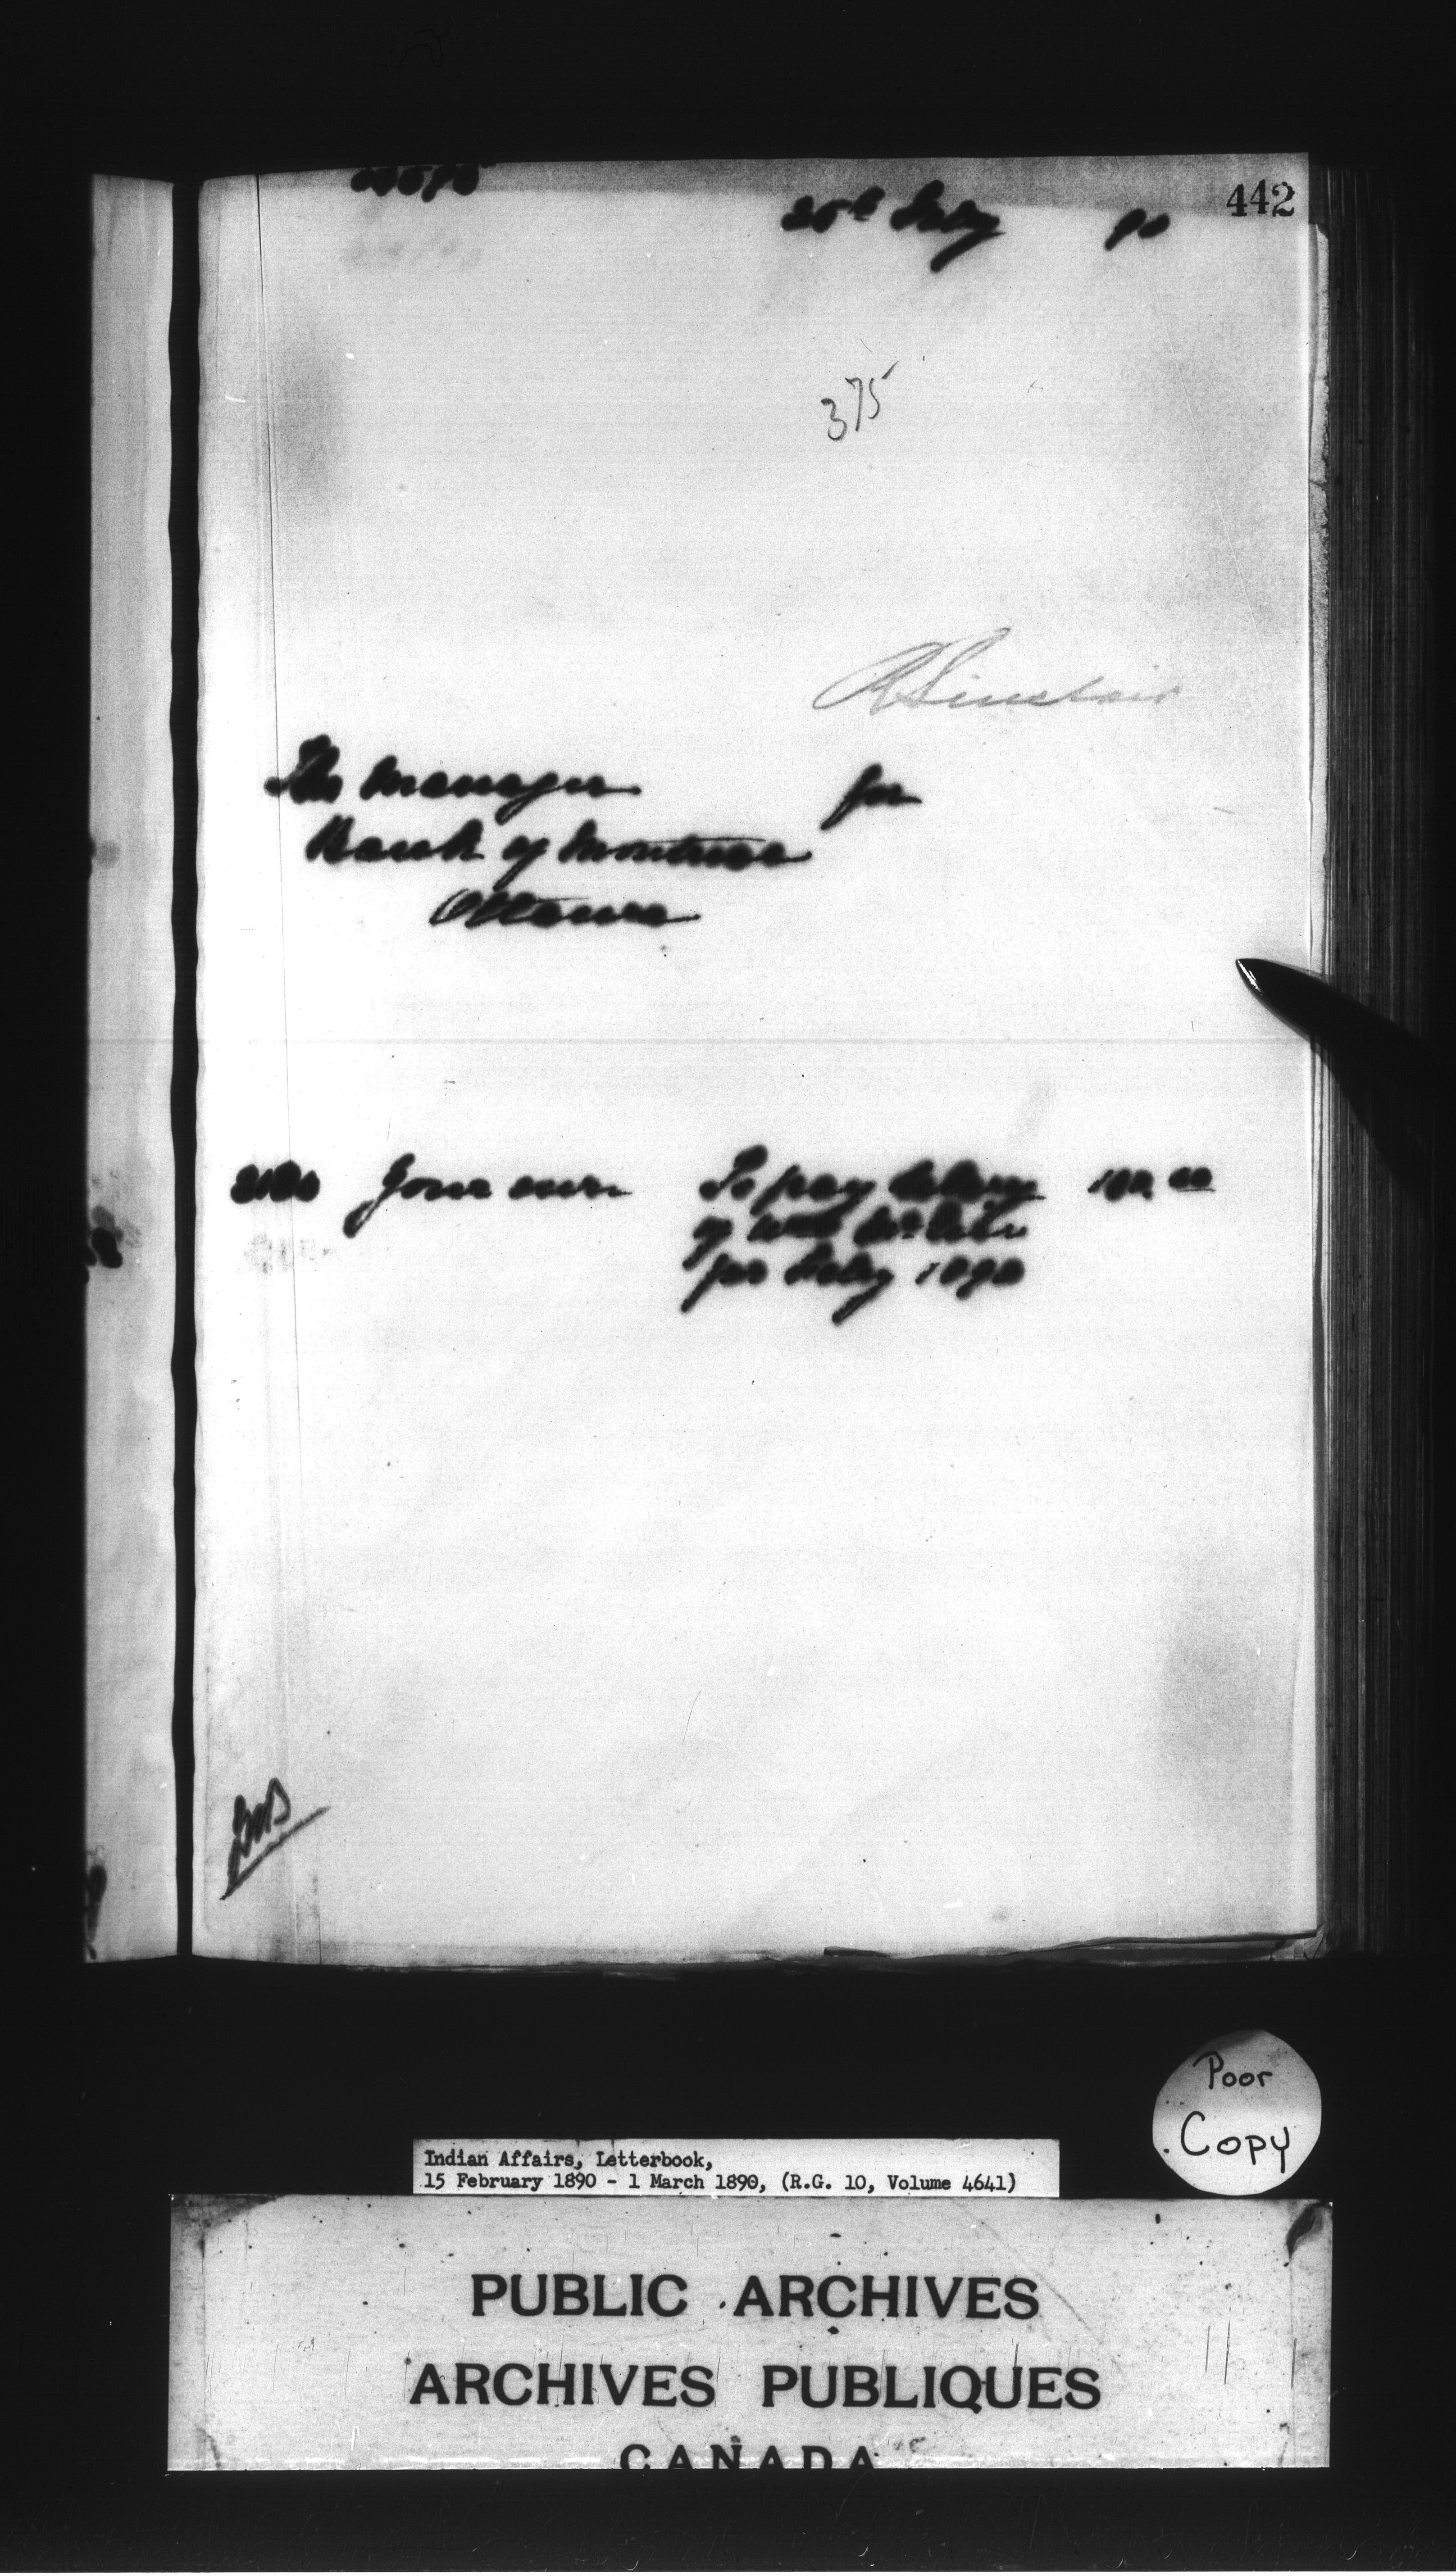 442
26th Feby 90
375
A Sinclair
The Manager for
Bank of Montreal
Ottawa
Your own To pay Salary 100.00
of
for Feby 1890
Poor
Copy
Indian Affairs, Letterbook,
15 February 1890 - 1 March 1890, (R.G. 10, Volume 4641)
PUBLIC ARCHIVES
ARCHIVES PUBLIQUES
CANADA